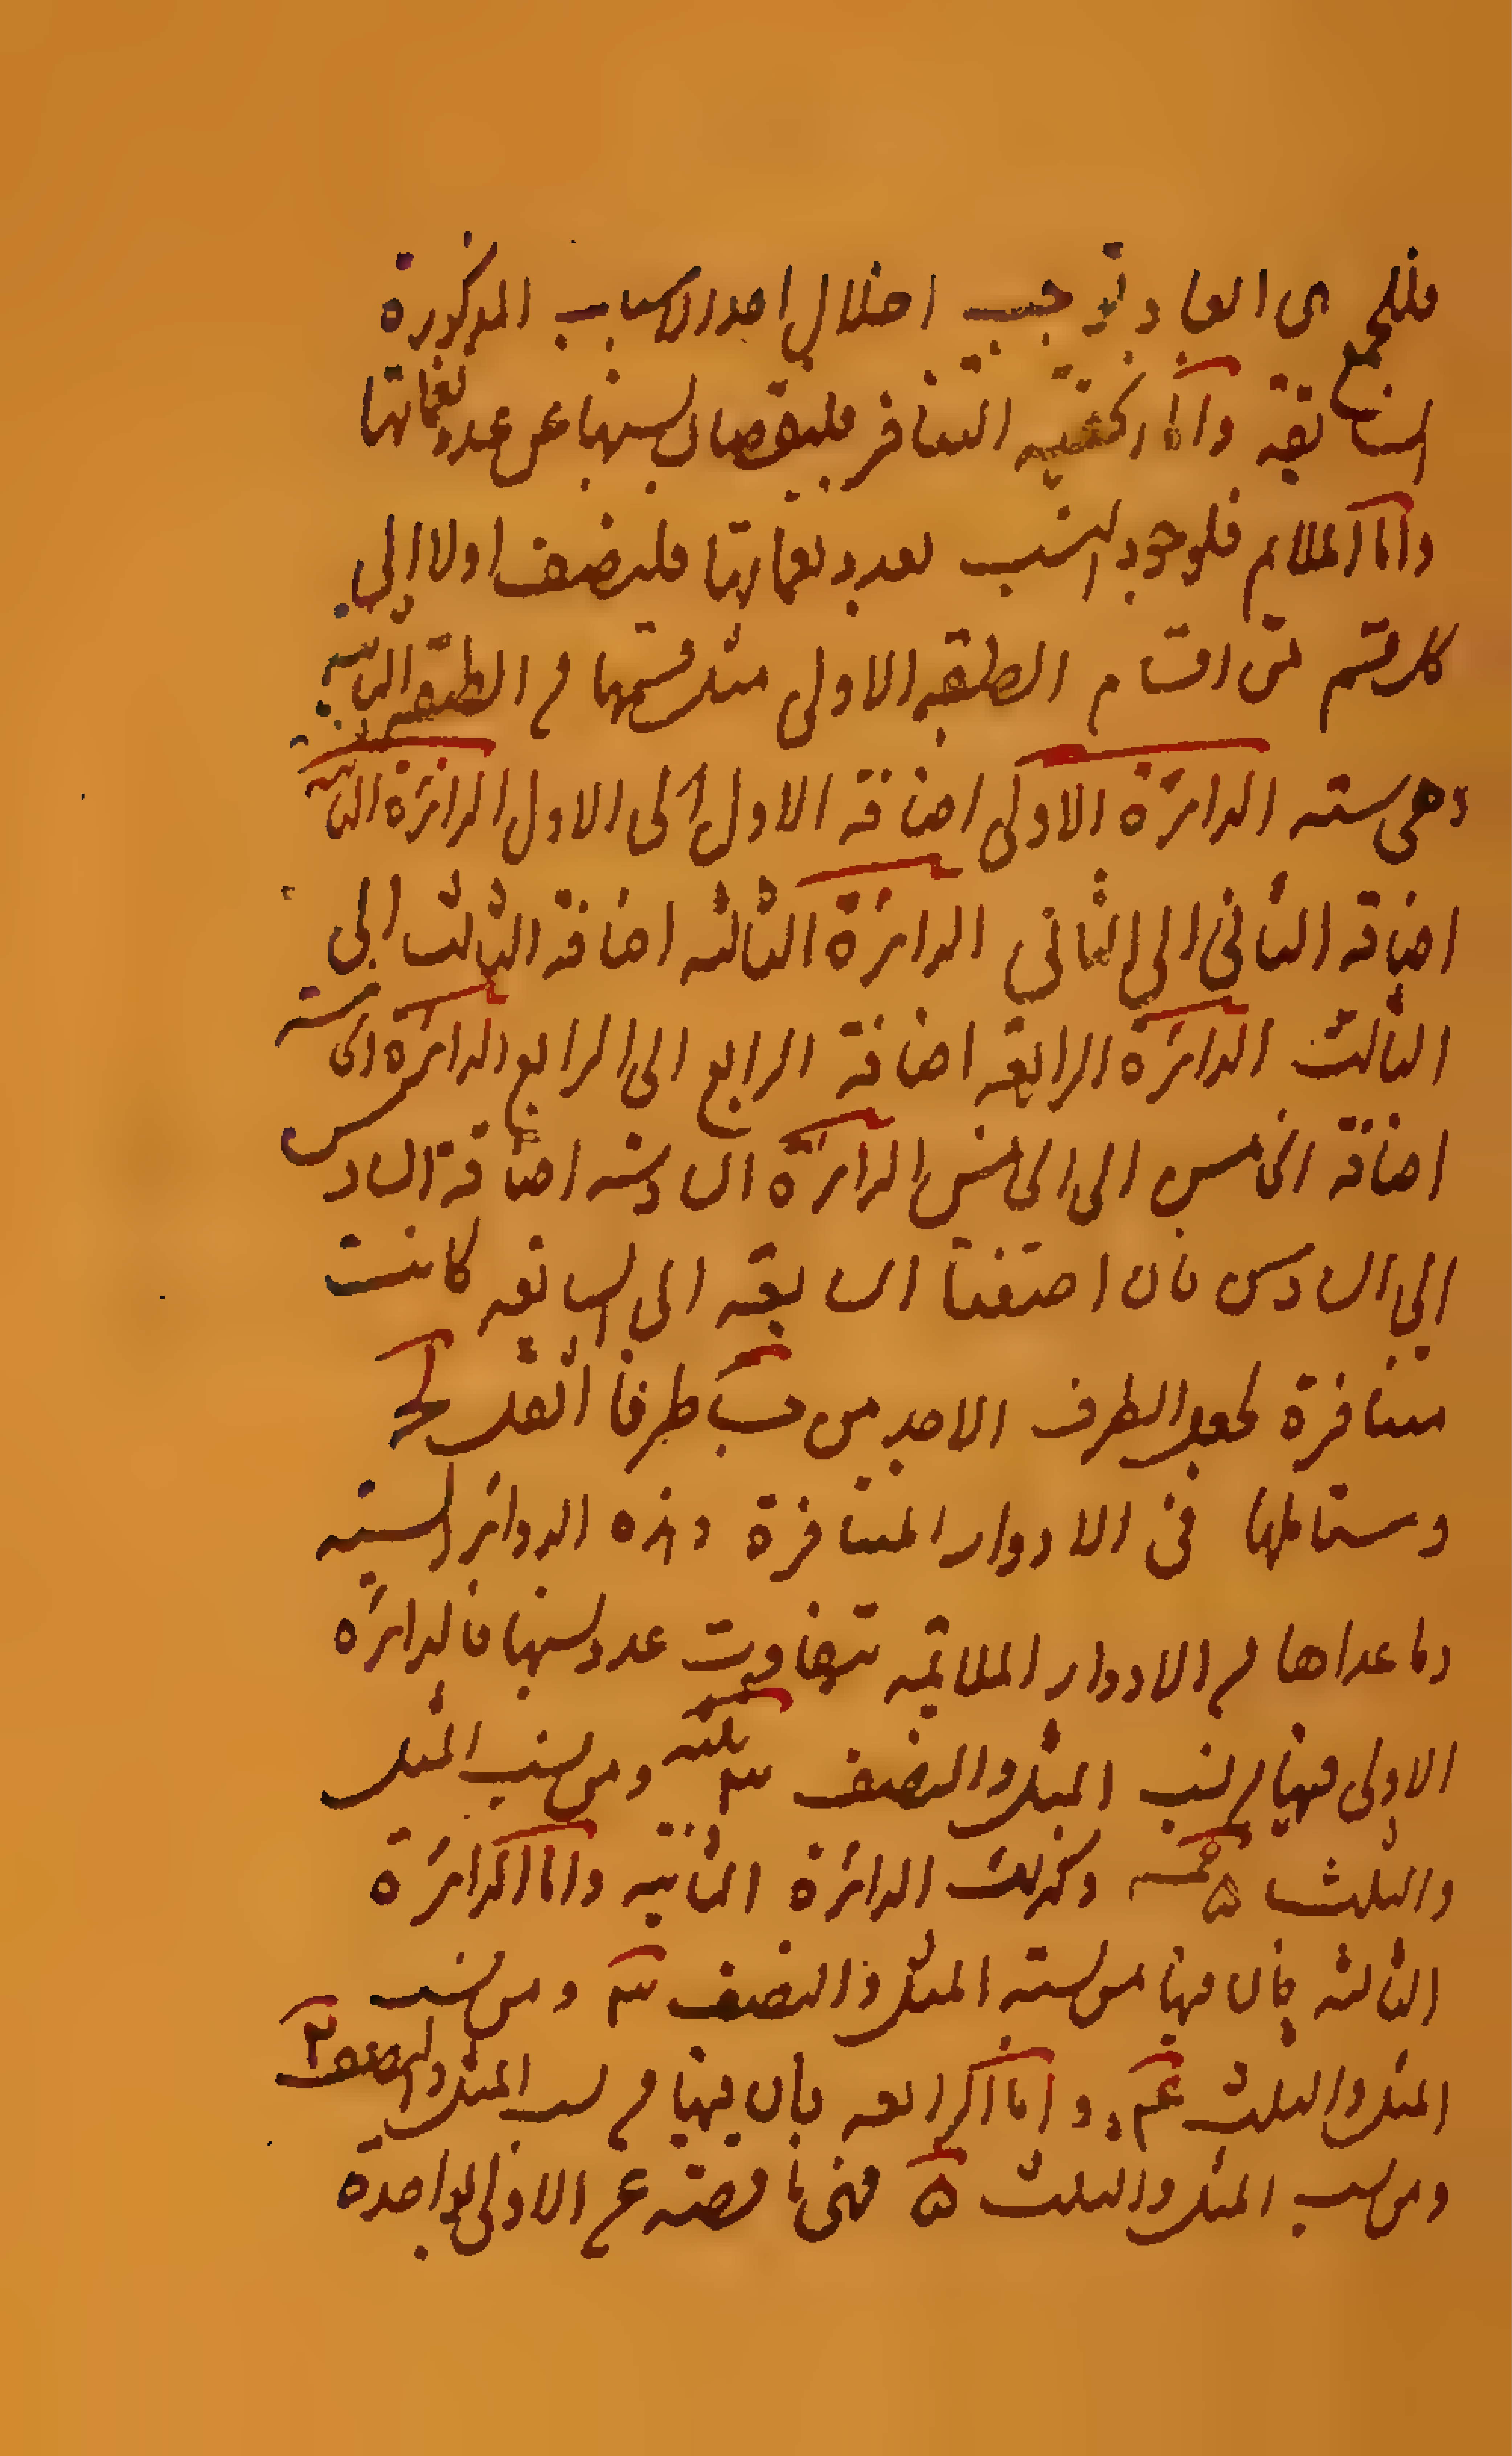 فللجمع بين ابعاد توجب اخلال احد الاسباب المذكورة
السابقة واما كيفية التنافر فلنقصان نسبها عن عدد نغماتها
واما الملايم فلوجود النسب بعدد نغماتها فليضف اولا الى
كل قسم من اقسام الطبقه الاولى مثل قسمها من الطبقه الثانيه
وهى سته الدائرة الاولى اضافة الاول الى الاول الدائرة الثانيه
اضافة الثانى الى الثاني الدائرة الثالثه اضافة الثالث الى
الثالث الدائرة الرابعه اضافة الرابع الى الرابع الدائرة الخامسه
اضافة الخامس الى الخامس الدائرة السادسه اضافة السادس
الى السادس فان اضفنا السابعه الى السابعه كانت
متنافرة لجعل الطرف الاحد من طرفا اثقل
وستاطها فى الادوار المتنافرة وهذه الدوائر الستيه
وما عداها من الادوار الملائمه تتفاوت عدد نسبها فالدائرة
الاولى فيها من نسب المثل والنصف ٣ ثلثه ومن نسب المثل
والثلث ۵ خمسه وكذلك الدائرة الثانيه واما الدائرة
الثالثه فان فيها من نسبه المثل والنصف ٣ ومن نسب
المثل والثلث ۴ واما الرابعه فان فيها من نسب المثل والنصف ٢
ومن نسب المثل والثلث ۵ فهى ناقصة عن الاولى بواحدة